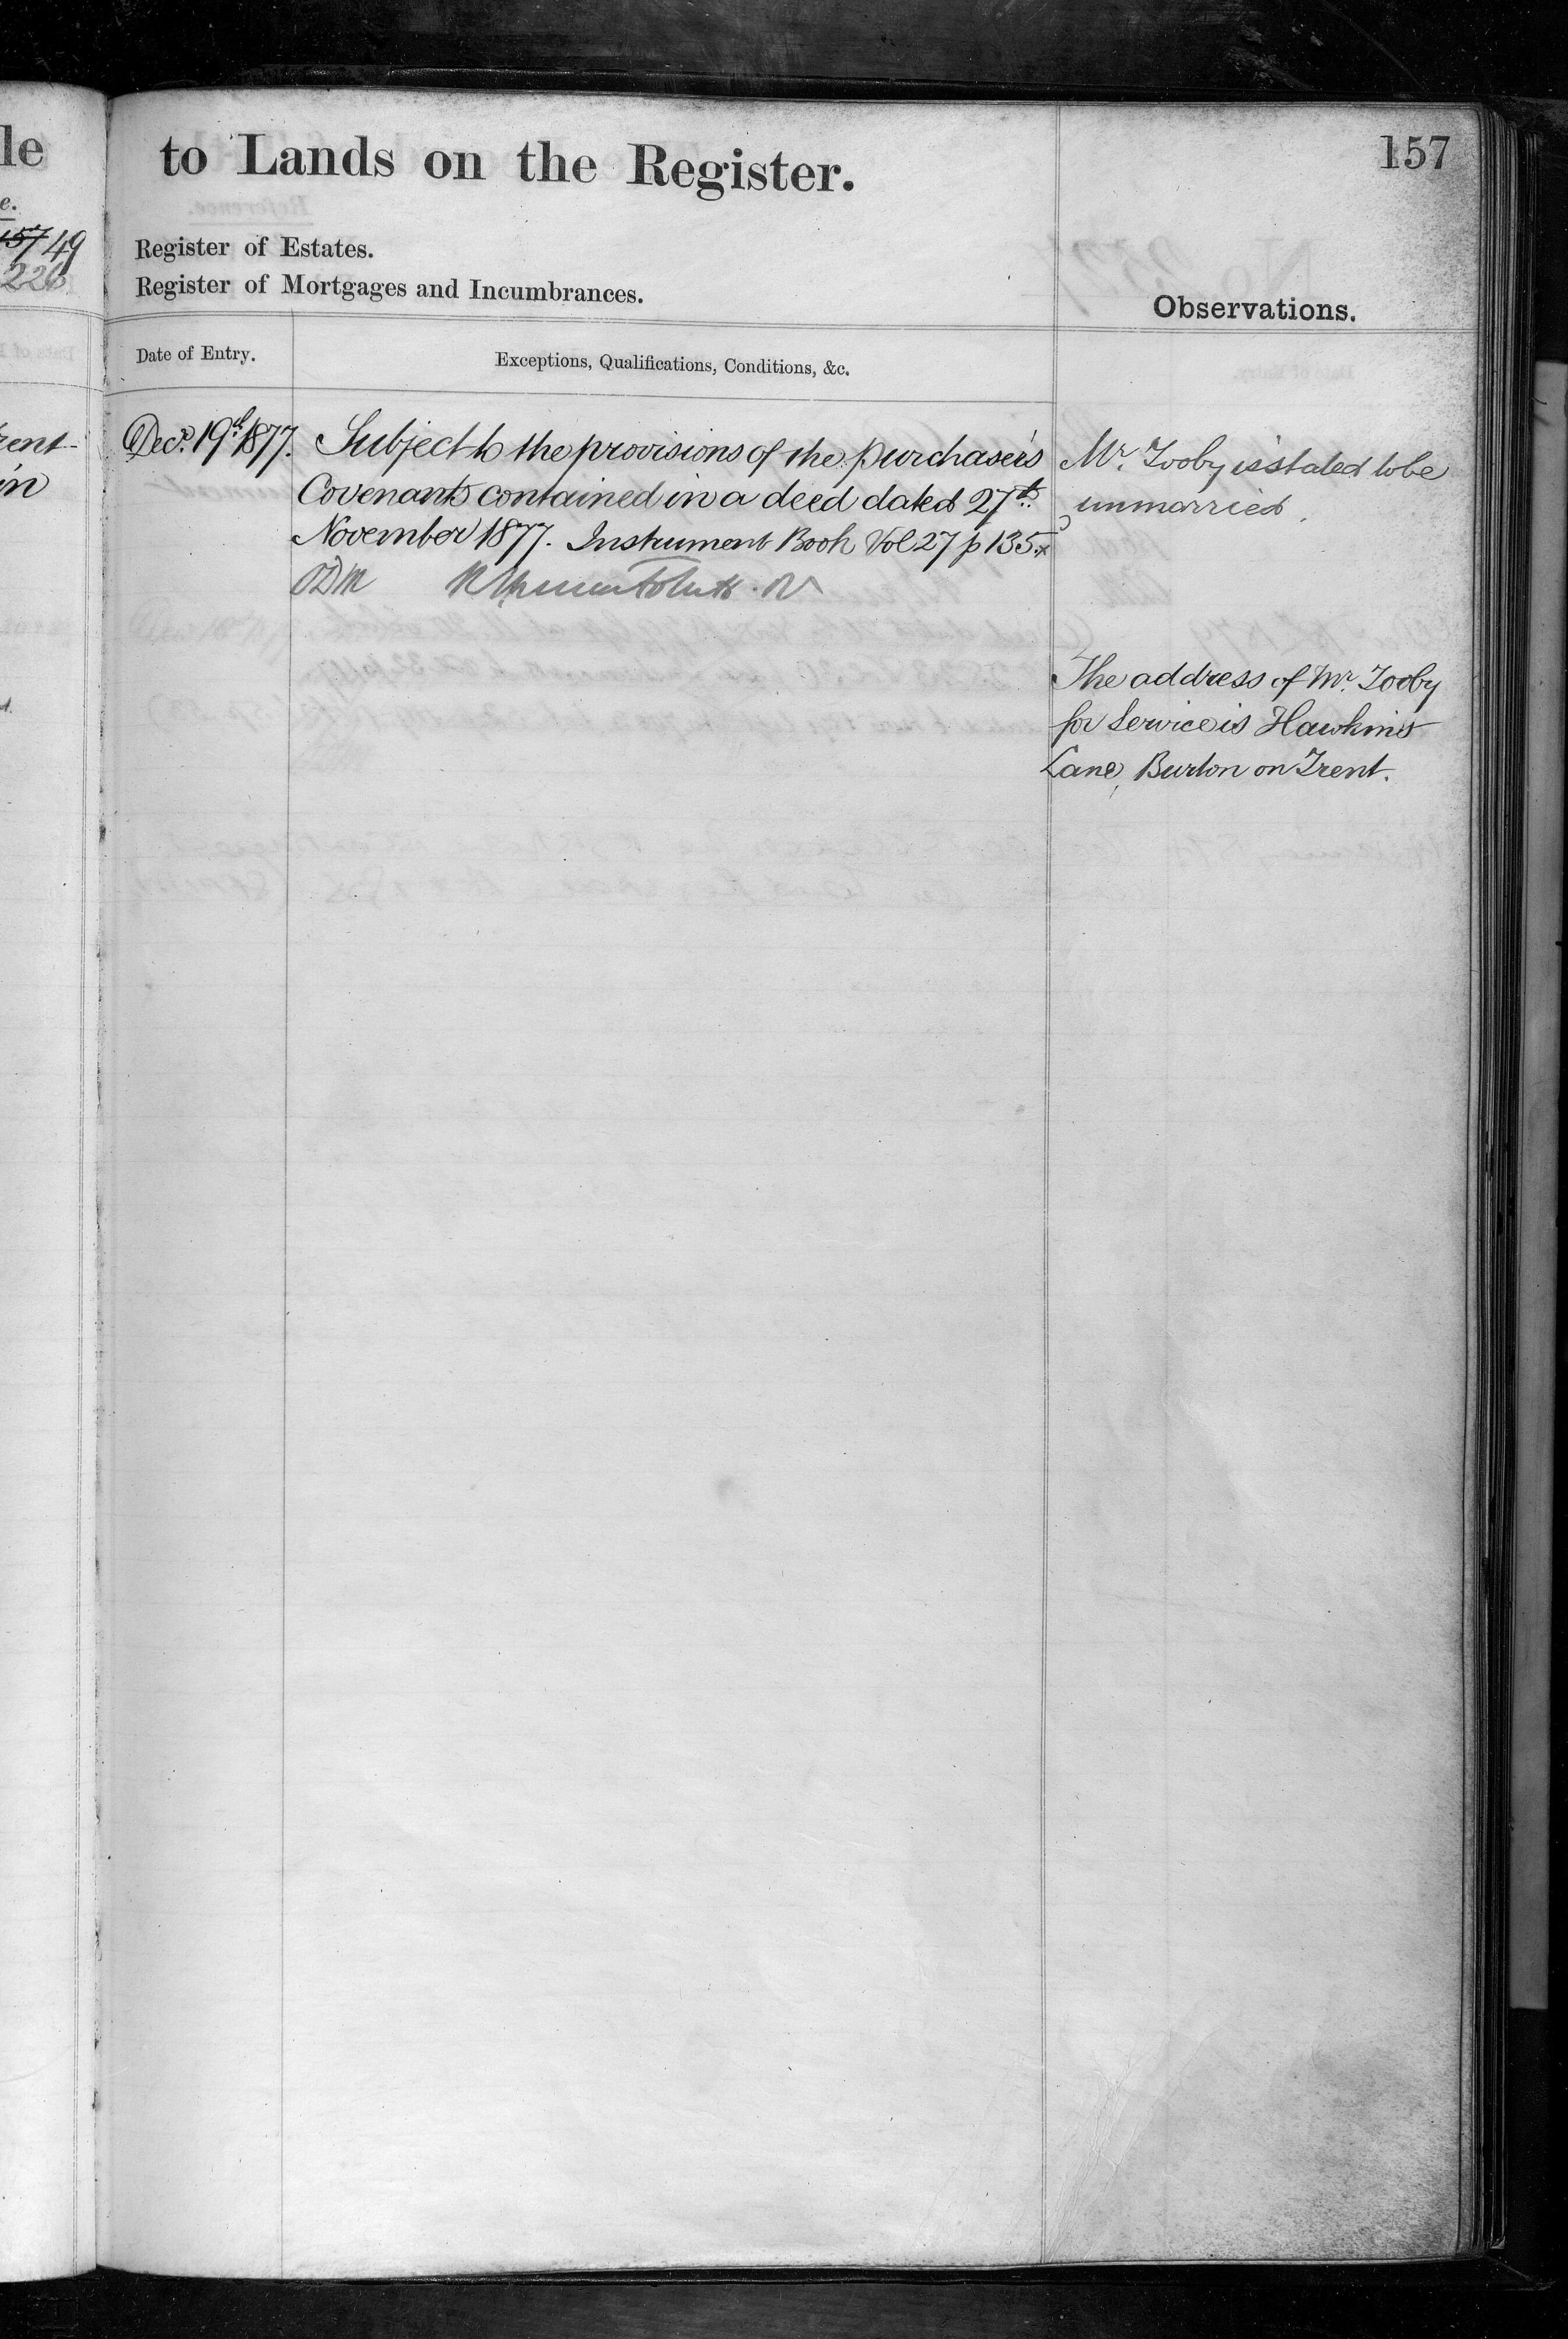 le
to Lands on the Register.
157
e.
157 49
226
Register of Estates.
Register of Mortgages and Incumbrances.
Observations.
Date of Entry.
Exceptions, Qualifications, Conditions, &c.
rent-
in
Decr. 19th 1877.
Subject to the provisions of the purchaser's
Covenants contained in a deed dated 27th
November 1877. Instrument Book Vol 27 p 135. x
ODM
Mr. Tooby is stated to be
unmarried.
The address of Mr. Tooby
for Service is Hawkins
Lane, Burton on Trent.